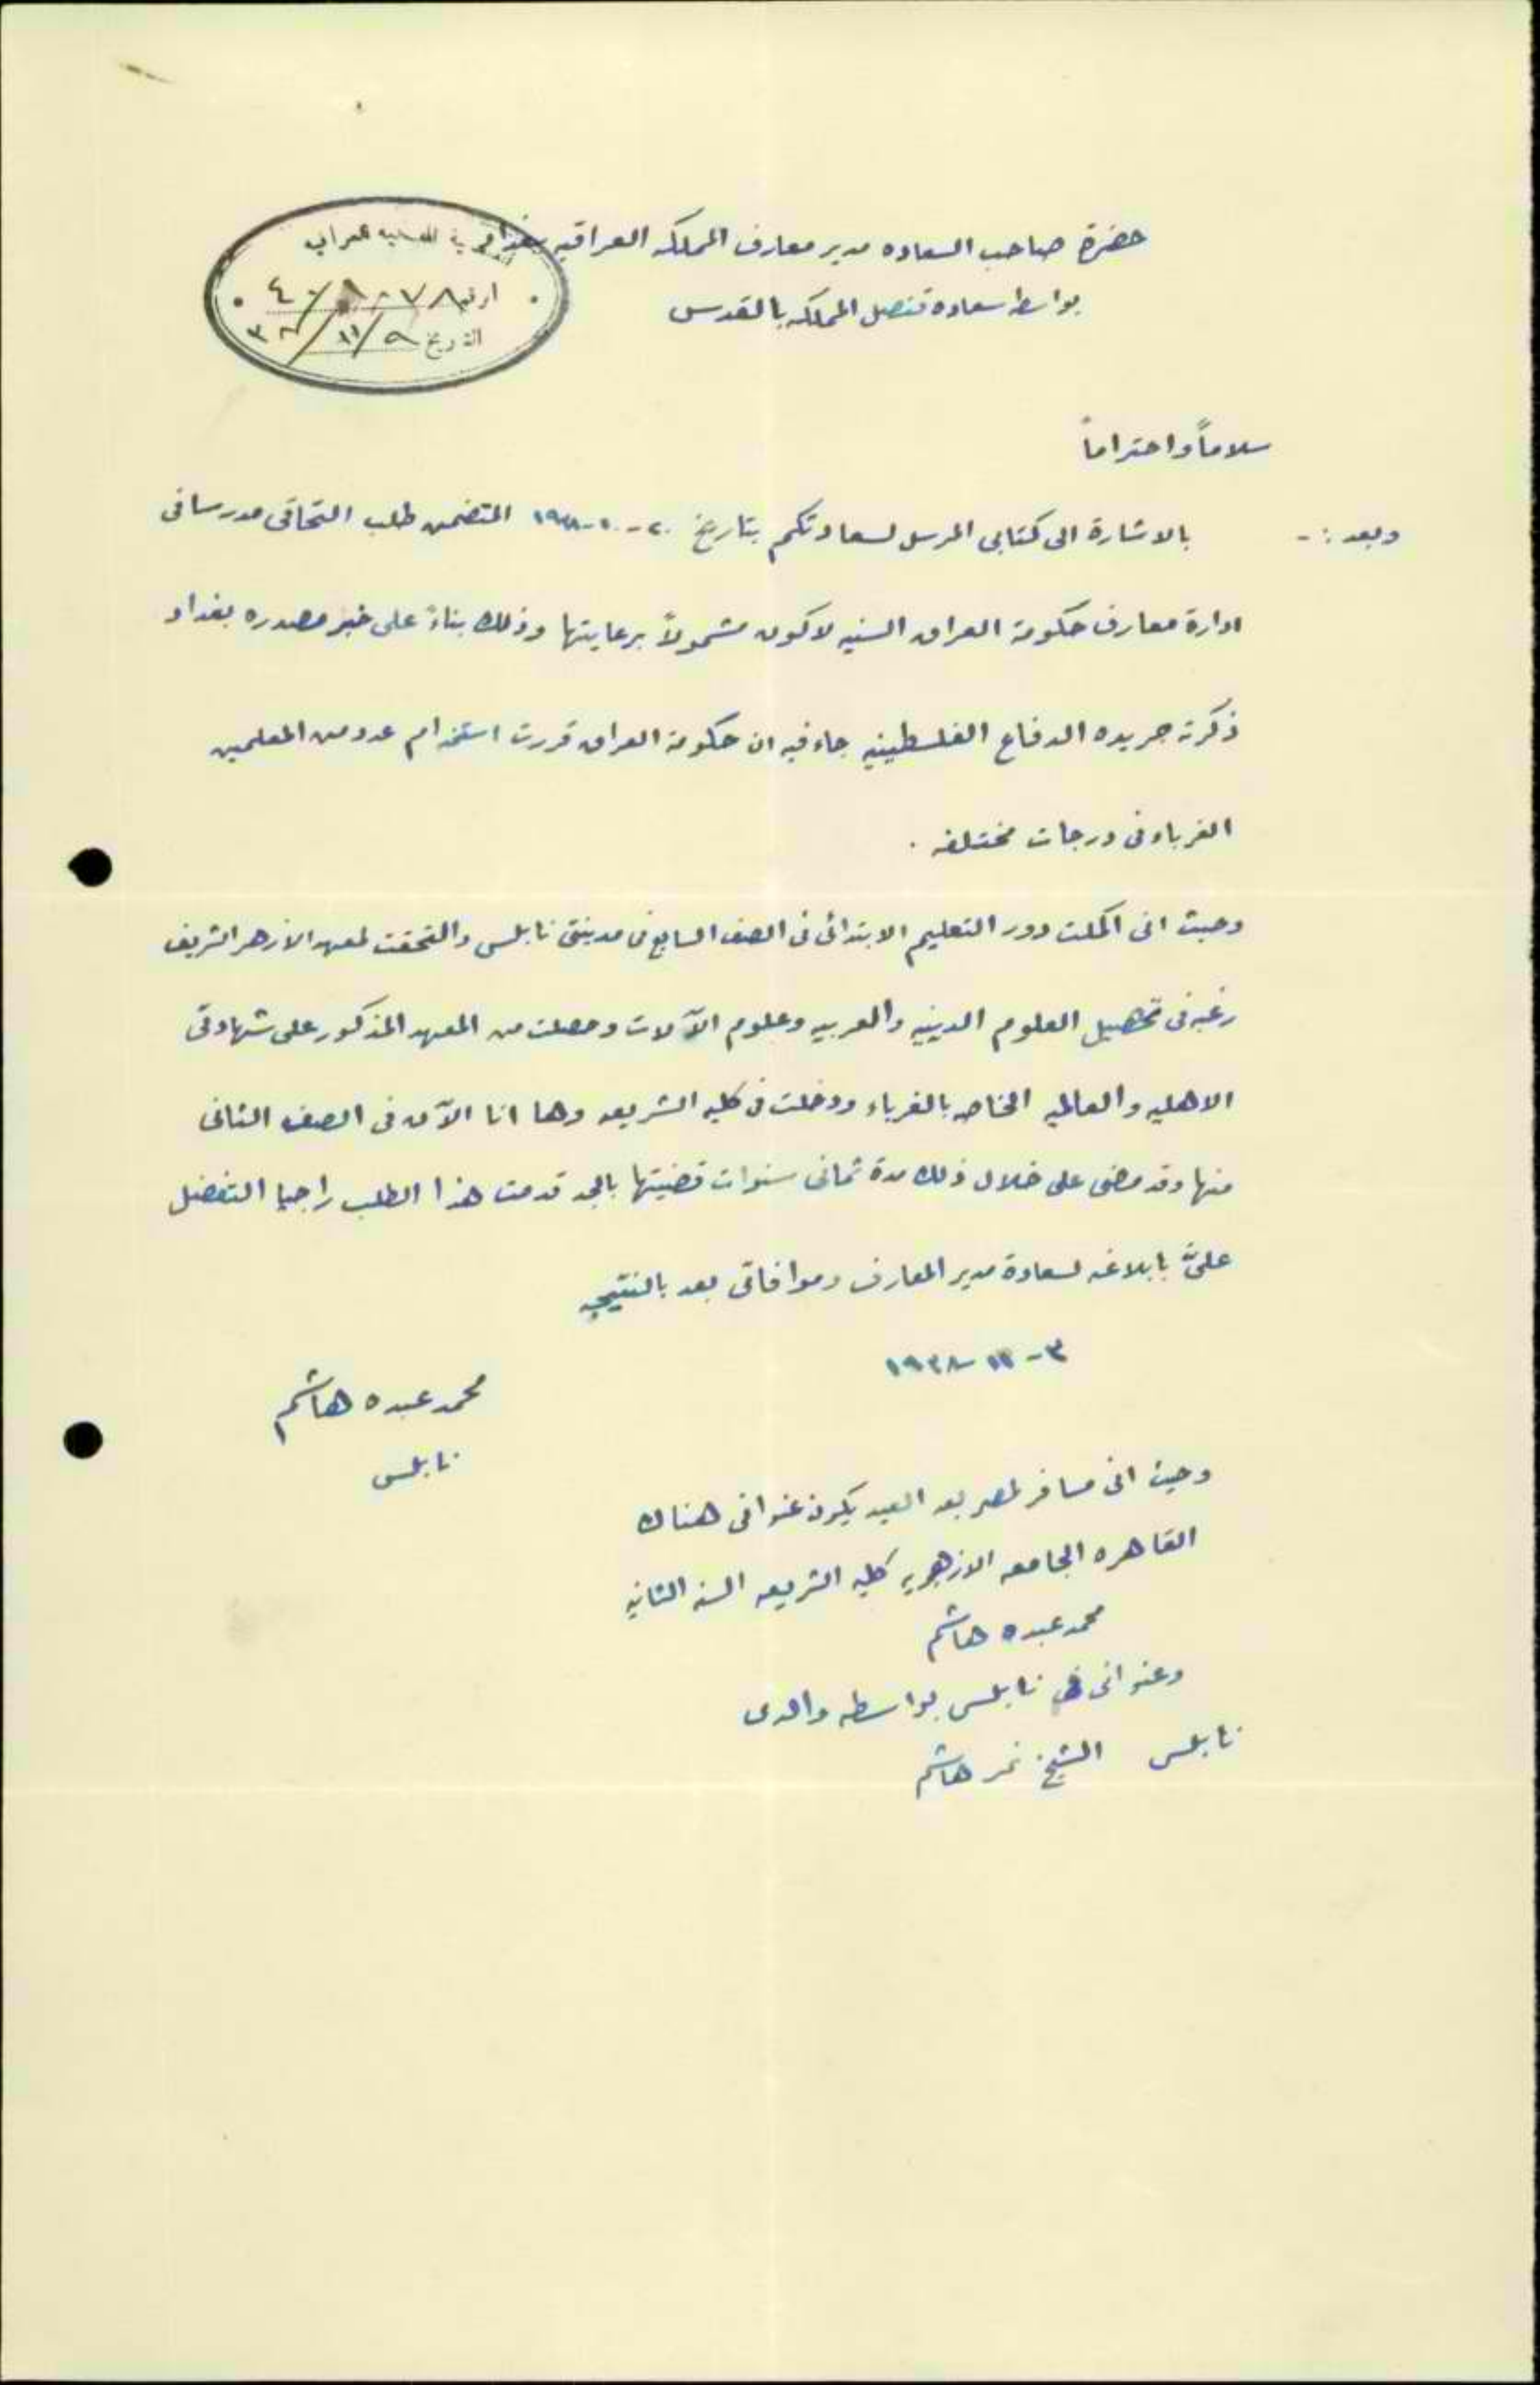 حضرة صاحب السعاده مدير معارف المملكه العراقيه ببغداد
بواسطه سعاده قنصل المملكه بالقدس
الرقم
التاريخ ٩/١١/٣٨
سلاماً واحتراماً
وبعد :- بالاشارة الى كتابى المرسل لسعادتكم بتاريخ ٢٠-١٠-١٩٣٨ المتضمن طلب التحاقى مدرسا فى
ادارة معارف حكومة العراق السنيه لاكون مشمولاً برعايتها وذلك بناءً على خبر مصدره بغداد
ذكرته جريده الدفاع الفلسطينيه جاء فيه ان حكومة العراق قررت استخدام عدد من المعلمين
الغرباء فى درجات مختلفه .
وحيث انى اكملت دور التعليم الابتدائى فى الصف السابع فى مدينتى نابلس والتحقت لمعهد الازهر الشريف
رغبه فى تحصيل العلوم الدينيه والعربيه وعلوم الآلات وحصلت من المعهد المذكور على شهادتى
الاهليه والعالميه الخاصه بالغرباء ودخلت فى كليه الشريعه وها انا الآن فى الصف الثانى
منها وقد مضى على خلال ذلك مدة ثمانى سنوات قضيتها بالجد قدمت هذا الطلب راجيا التفضل
علىَّ بابلاغه لسعادة مدير المعارف وموافاتى بعد بالنتيجه
٣-١١-١٩٣٨
محمد عبده هاشم
نابلس
وحيث انى مسافر لمصر بعد العيد يكون عنوانى هناك
القاهره الجامعه الازهريه كليه الشريعه السنه الثانيه
محمد عبده هاشم
وعنوانى فى نابلس بواسطه والدى
نابلس الشيخ نمر هاشم